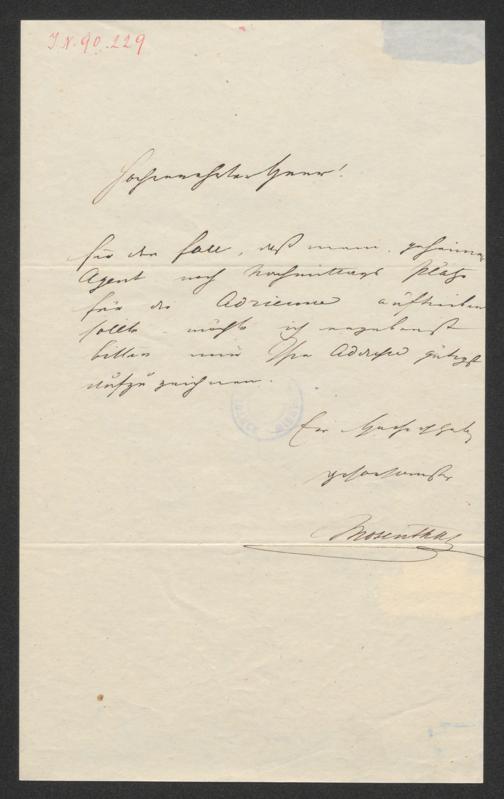 J.N. 90.229
Hochverehrter Herr!
für den Fall, daß mein geheimer
Agent noch Nachmittags Plätze
für die Adrienne auftreiben
sollte möchte ich ergebenst
bitten mir Ihre Adresse gütigst
aufzuzeichnen.
Euer Hochwohlgeb
gehorsamster
Mosenthal